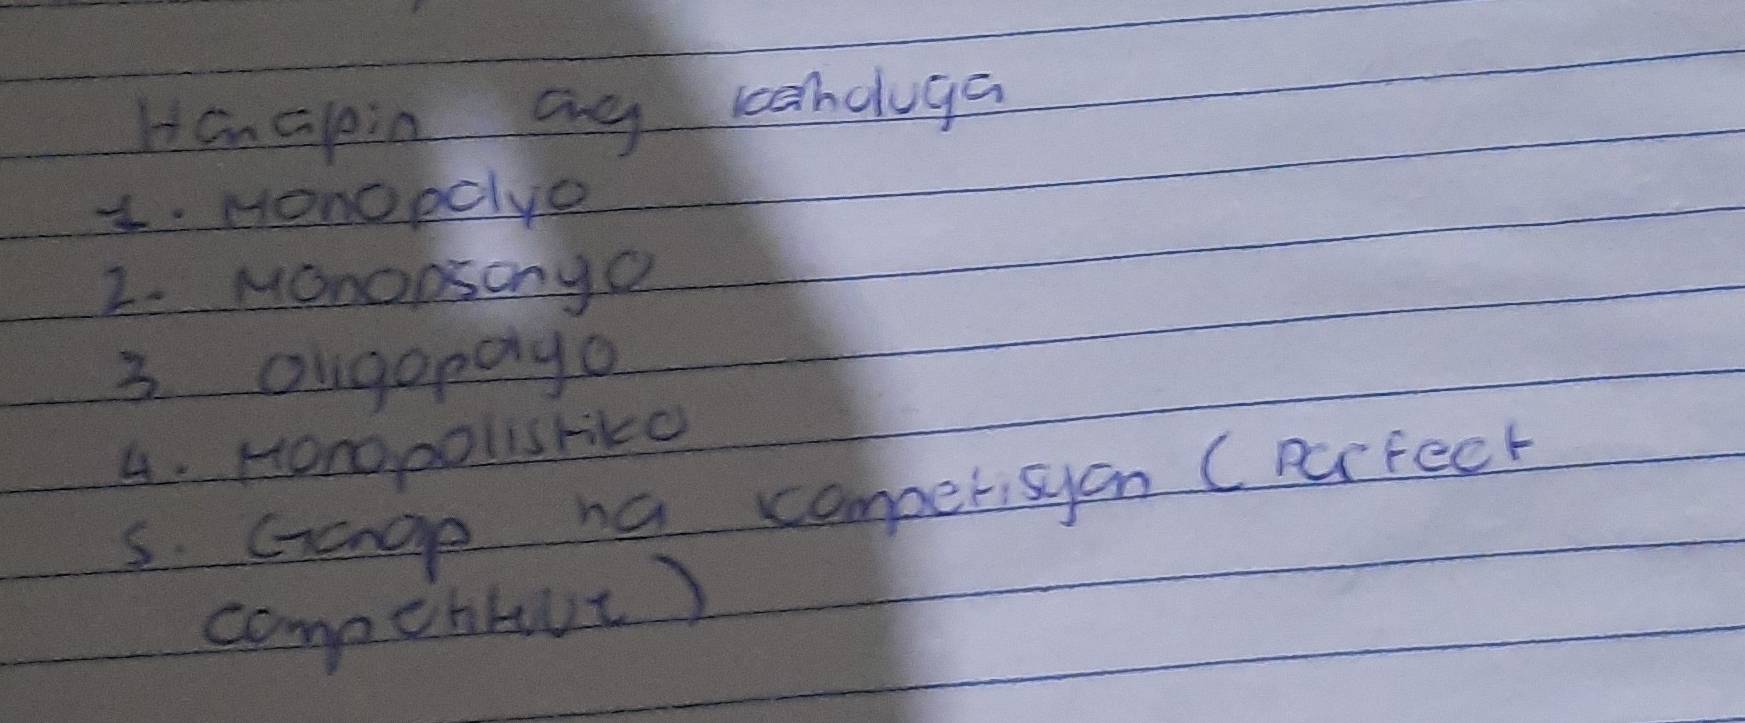 Hanapin ang kahuluga
1. Monopolyo
2. Monopsonyo
3 Oligopolyo
4. Monopolistiko
5. Ganap na kompetisyon ( Perfect
competitive )